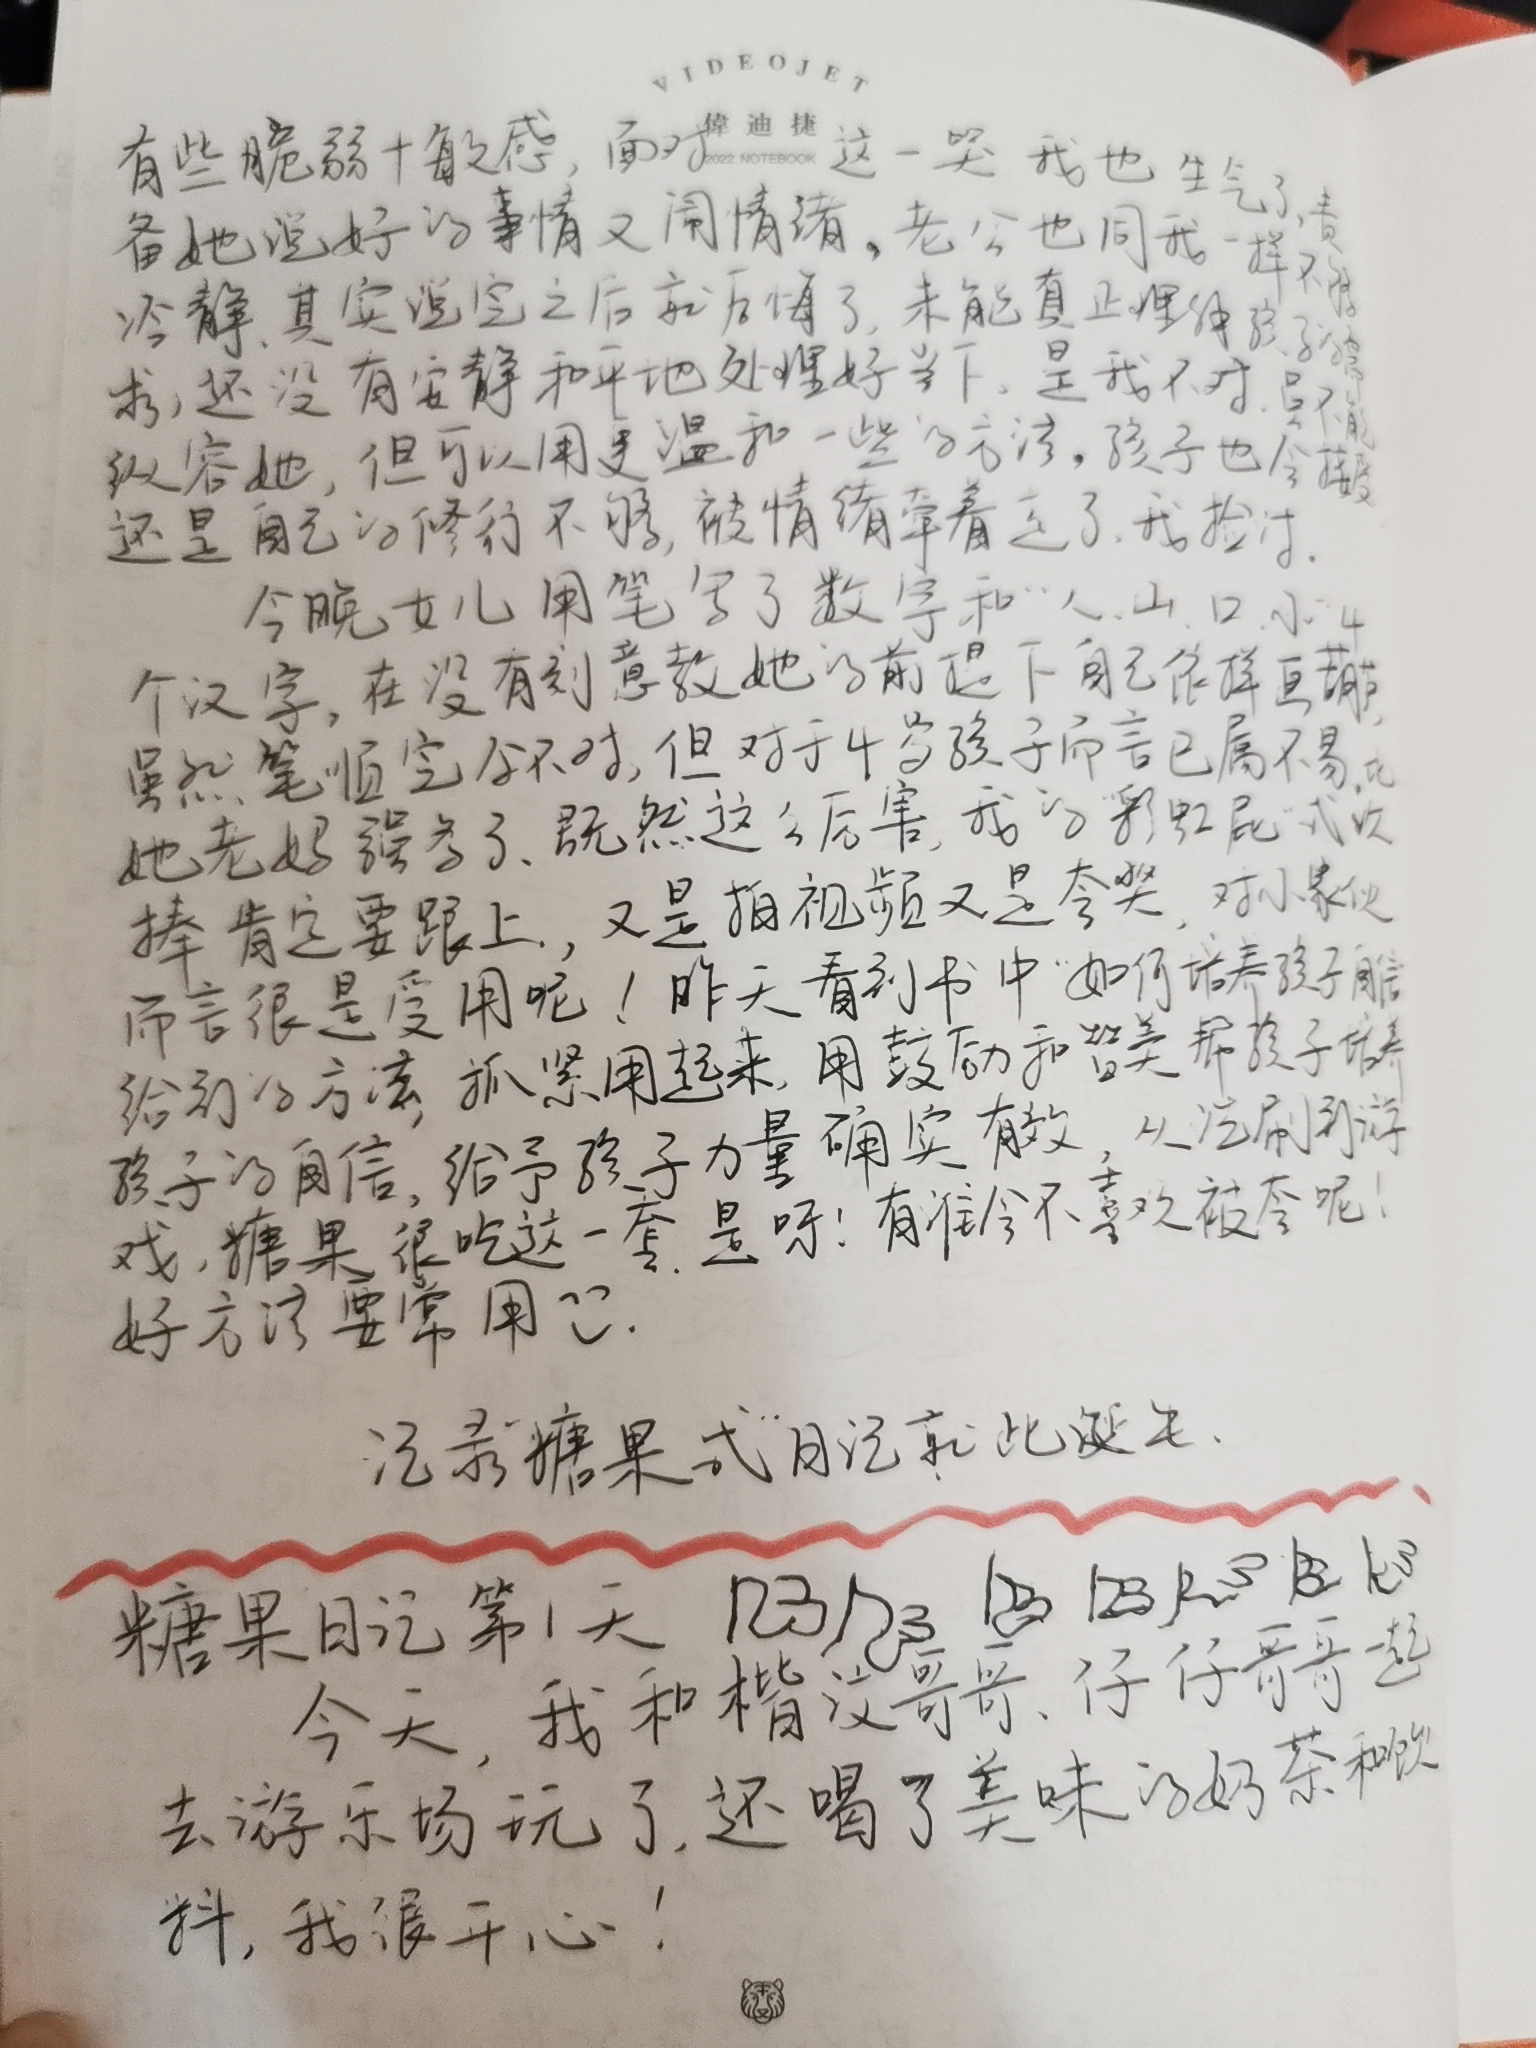 VIDEOJET
偉迪捷
2022 NOTEBOOK
有些脆弱+敏感,面对 这一哭 我也 生气了,责
备她说好的事情又闹情绪。老公也同我一样不够
冷静、其实说完之后就后悔了,未能真正理解孩子需
求,还没有安静和平地处理好当下、是我不对.虽不能
纵容她,但可以用更温和一些的方法,孩子也会接受
还是自己的修行不够,被情绪牵着走了.我检讨.
今晚女儿用笔写了数字和“人、山、口、小”4
个汉字,在没有刻意教她的前提下自己依样画葫芦,
虽然笔顺完全不对,但对于4岁孩子而言已属不易,比
她老妈强多了、既然这么厉害,我的“彩虹屁”式吹
捧肯定要跟上,又是拍视频又是夸奖,对小家伙
而言很是受用呢!昨天看到书中“如何培养孩子自信”
给到的方法,抓紧用起来,用鼓励和赞美帮孩子培养
孩子的自信,给予孩子力量确实有效,从洗刷到游
戏,糖果很吃这一套.是呀!有谁会不喜欢被夸呢!
好方法要常用.
记录“糖果式”日记就此诞生.
糖果日记第1天 123
今天,我和楷汶哥哥、仔仔哥哥一起
去游乐场玩了,还喝了美味的奶茶和饮
料,我很开心!